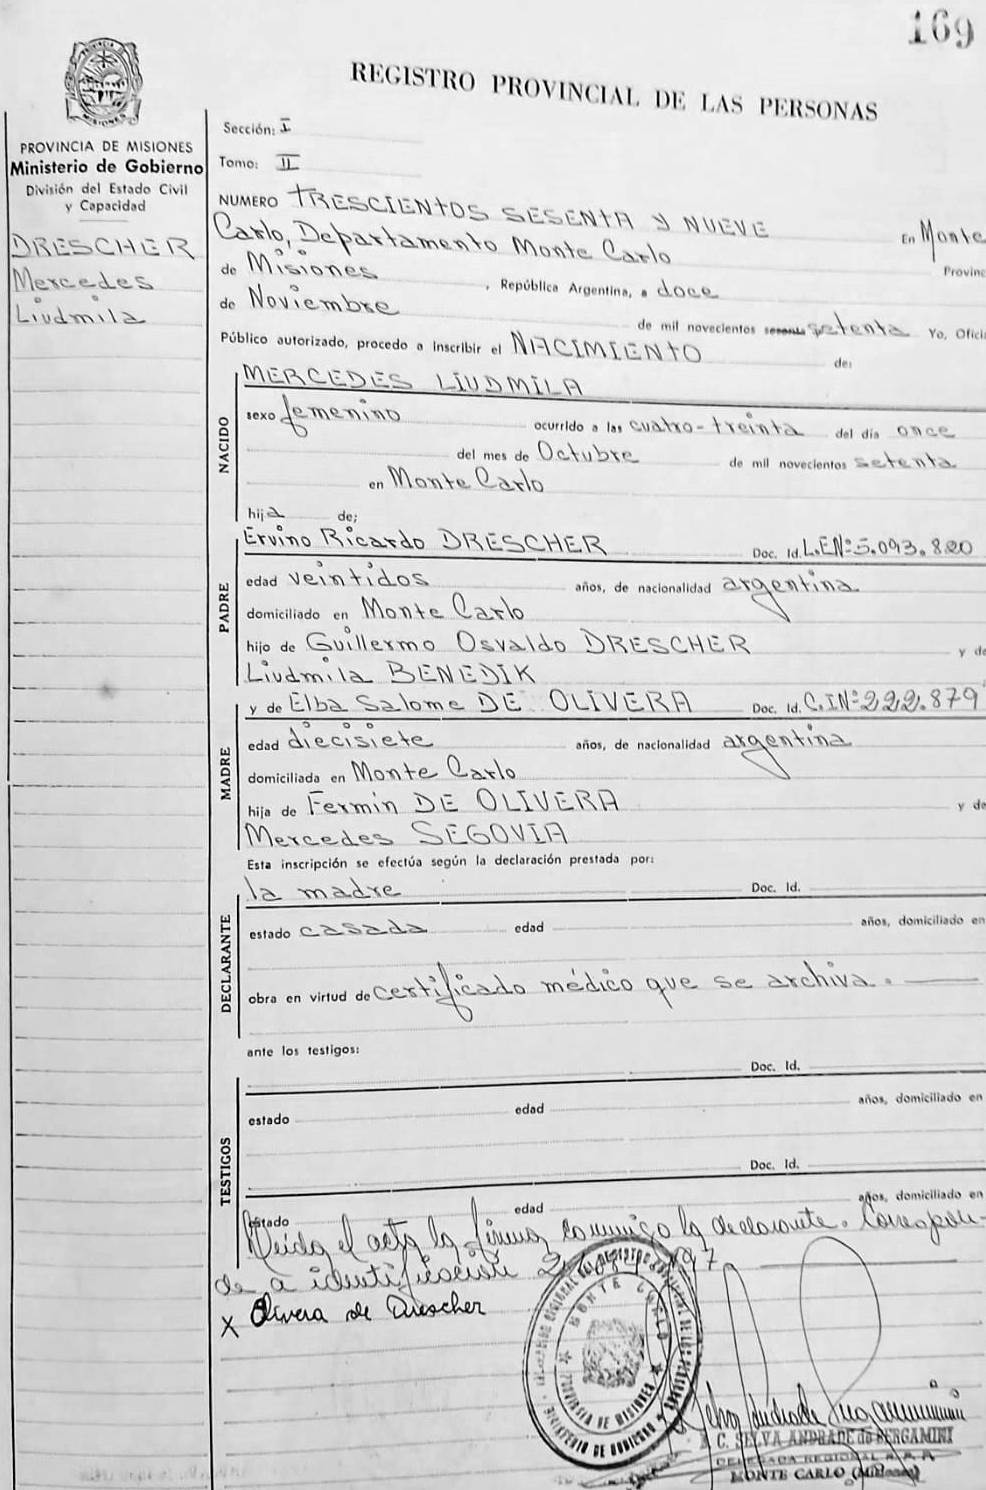 169
REGISTRO PROVINCIAL DE LAS PERSONAS
PROVINCIA DE MISIONES
Ministerio de Gobierno
División del Estado Civil
y Capacidad
DRESCHER
Mercedes
Liudmila
Sección: I
Tomo: II
NUMERO TRESCIENTOS SESENTA Y NUEVE En Monte
Carlo, Departamento Monte Carlo Provinc
de Misiones, República Argentina, a doce
de Noviembre de mil novecientos setenta Yo, Ofici
Público autorizado, procedo a inscribir el NACIMIENTO de:
MERCEDES LIUDMILA
NACIDO
sexo femenino ocurrido a las cuatro-treinta del día once
del mes de Octubre de mil novecientos setenta
en Monte Carlo
hija de;
PADRE
Ervino Ricardo DRESCHER Doc. Id. L.E.Nº 5.093.820
edad veintidos años, de nacionalidad argentina
domiciliado en Monte Carlo
hijo de Guillermo Osvaldo DRESCHER y de
Liudmila BENEDIK
MADRE
y de Elba Salome DE OLIVERA Doc. Id. C.I.Nº 222.879
edad diecisiete años, de nacionalidad argentina
domiciliada en Monte Carlo
hija de Fermin DE OLIVERA y de
Mercedes SEGOVIA
Esta inscripción se efectúa según la declaración prestada por:
DECLARANTE
la madre Doc. Id.
estado casada edad años, domiciliado en
obra en virtud de certificado médico que se archiva.
ante los testigos:
TESTIGOS
Doc. Id.
estado edad años, domiciliado en
Doc. Id.
estado edad años, domiciliado en
Leida el acta la firma conmigo la declarante. Correspon-
de a identificación
X Olivera de Drescher
MONTE CARLO
PROVINCIA DE MISIONES
MINISTERIO DE GOBIERNO
C. SELVA ANDRADE de BERGAMINI
DELEGADA REGIONAL R.P.P.
MONTE CARLO (Misiones)